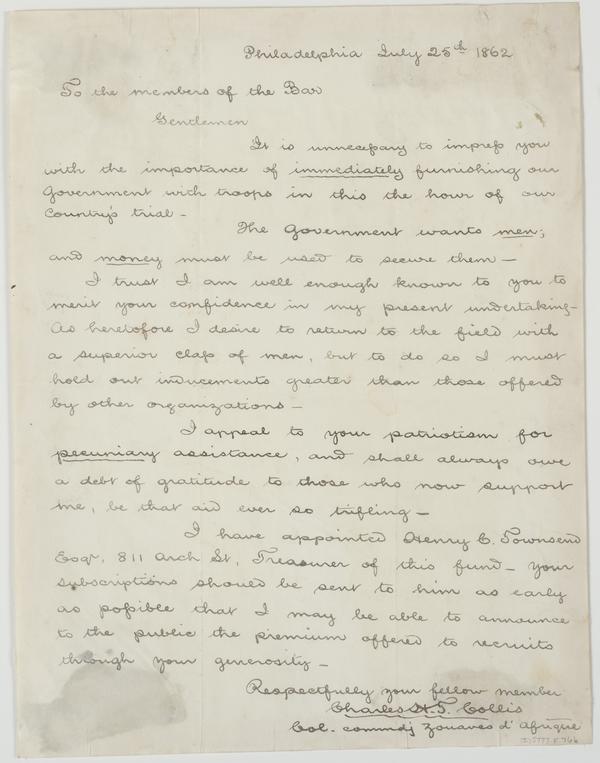 Philadelphia July 25th 1862
To the members of the Bar
Gentlemen
It is unnecessary to impress you
with the importance of immediately furnishing our
Government with troops in this the hour of our
Country's trial -
The Government wants men;
and money must be used to secure them -
I trust I am well enough known to you to
merit your confidence in my present undertaking -
As heretofore I desire to return to the field with
a superior class of men, but to do so I must
hold out inducements greater than those offered
by other organizations -
I appeal to your patriotism for
pecuniary assistance, and shall always owe
a debt of gratitude to those who now support
me, be that aid ever so trifling -
I have appointed Henry C. Townsend
Esqr, 811 Arch St, Treasurer of this fund - your
subscriptions should be sent to him as early
as possible that I may be able to announce
to the public the premium offered to recruits
through your generosity -
Respectfully your fellow member
Charles H. T. Collis
Col. commdg Zouaves d'Afrique